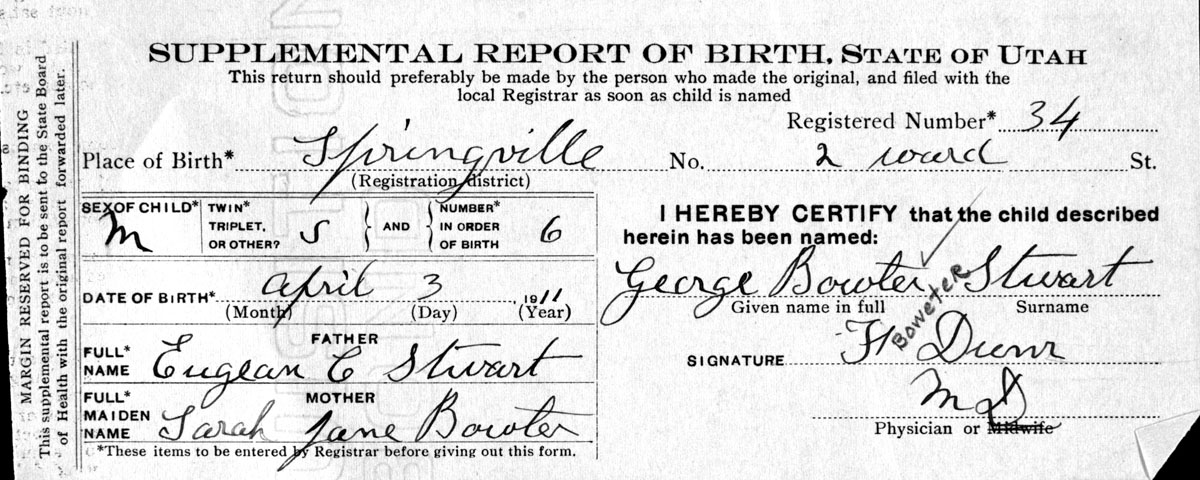 MARGIN RESERVED FOR BINDING
This supplemental report is to be sent to the State Board
of Health with the original report forwarded later.
SUPPLEMENTAL REPORT OF BIRTH, STATE OF UTAH
This return should preferably be made by the person who made the original, and filed with the
local Registrar as soon as child is named
Registered Number* 34
Place of Birth* Springville No. 2 ward St.
(Registration district)
SEX OF CHILD* M TWIN* TRIPLET, OR OTHER? S AND NUMBER* IN ORDER OF BIRTH 6
DATE OF BIRTH* April 3, 1911
(Month) (Day) (Year)
FATHER
FULL* NAME Eugean C Stwart
MOTHER
FULL* MAIDEN NAME Sarah Jane Bowter
*These items to be entered by Registrar before giving out this form.
I HEREBY CERTIFY that the child described
herein has been named:
George Bowter Stwart
BOWETER
Given name in full Surname
SIGNATURE Dunn
M D
Physician or Midwife